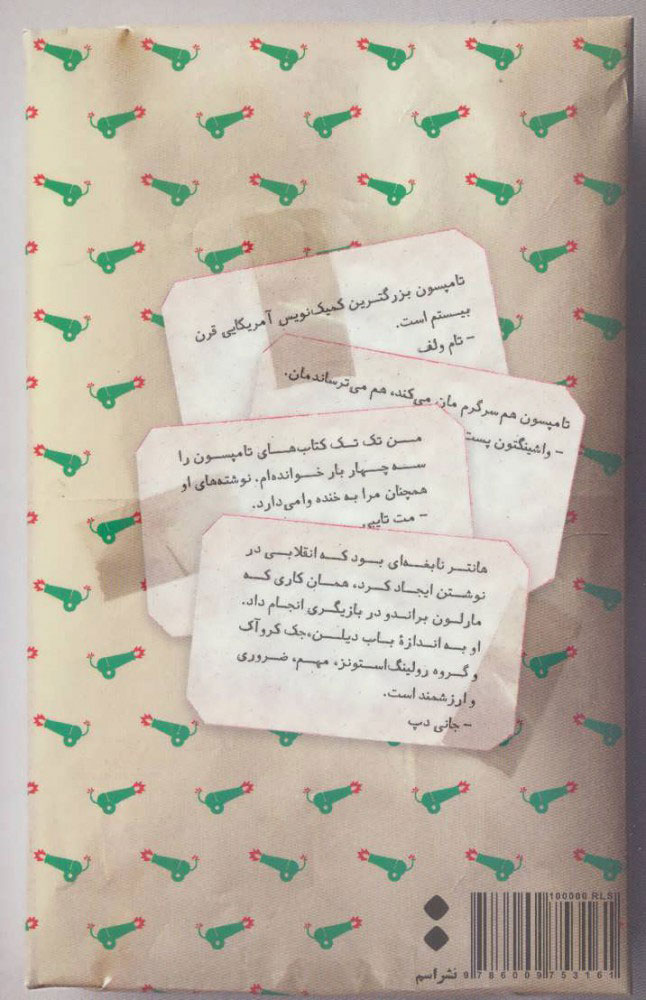 تامپسون بزرگترین کمیک‌نویس آمریکایی قرن
بیستم است.
- تام ولف
تامپسون هم سرگرم مان می‌کند، هم می‌ترساندمان.
- واشینگتون پست
من تک تک کتاب‌های تامپسون را
سه چهار بار خوانده‌ام. نوشته‌های او
همچنان مرا به خنده وامی‌دارد.
- مت تایبی
هانتر نابغه‌ای بود که انقلابی در
نوشتن ایجاد کرد، همان کاری که
مارلون براندو در بازیگری انجام داد.
او به اندازهٔ باب دیلن، جک کروآک
و گروه رولینگ‌استونز، مهم، ضروری
و ارزشمند است.
- جانی دپ
100006 RLS
9786009753161
نشر اسم